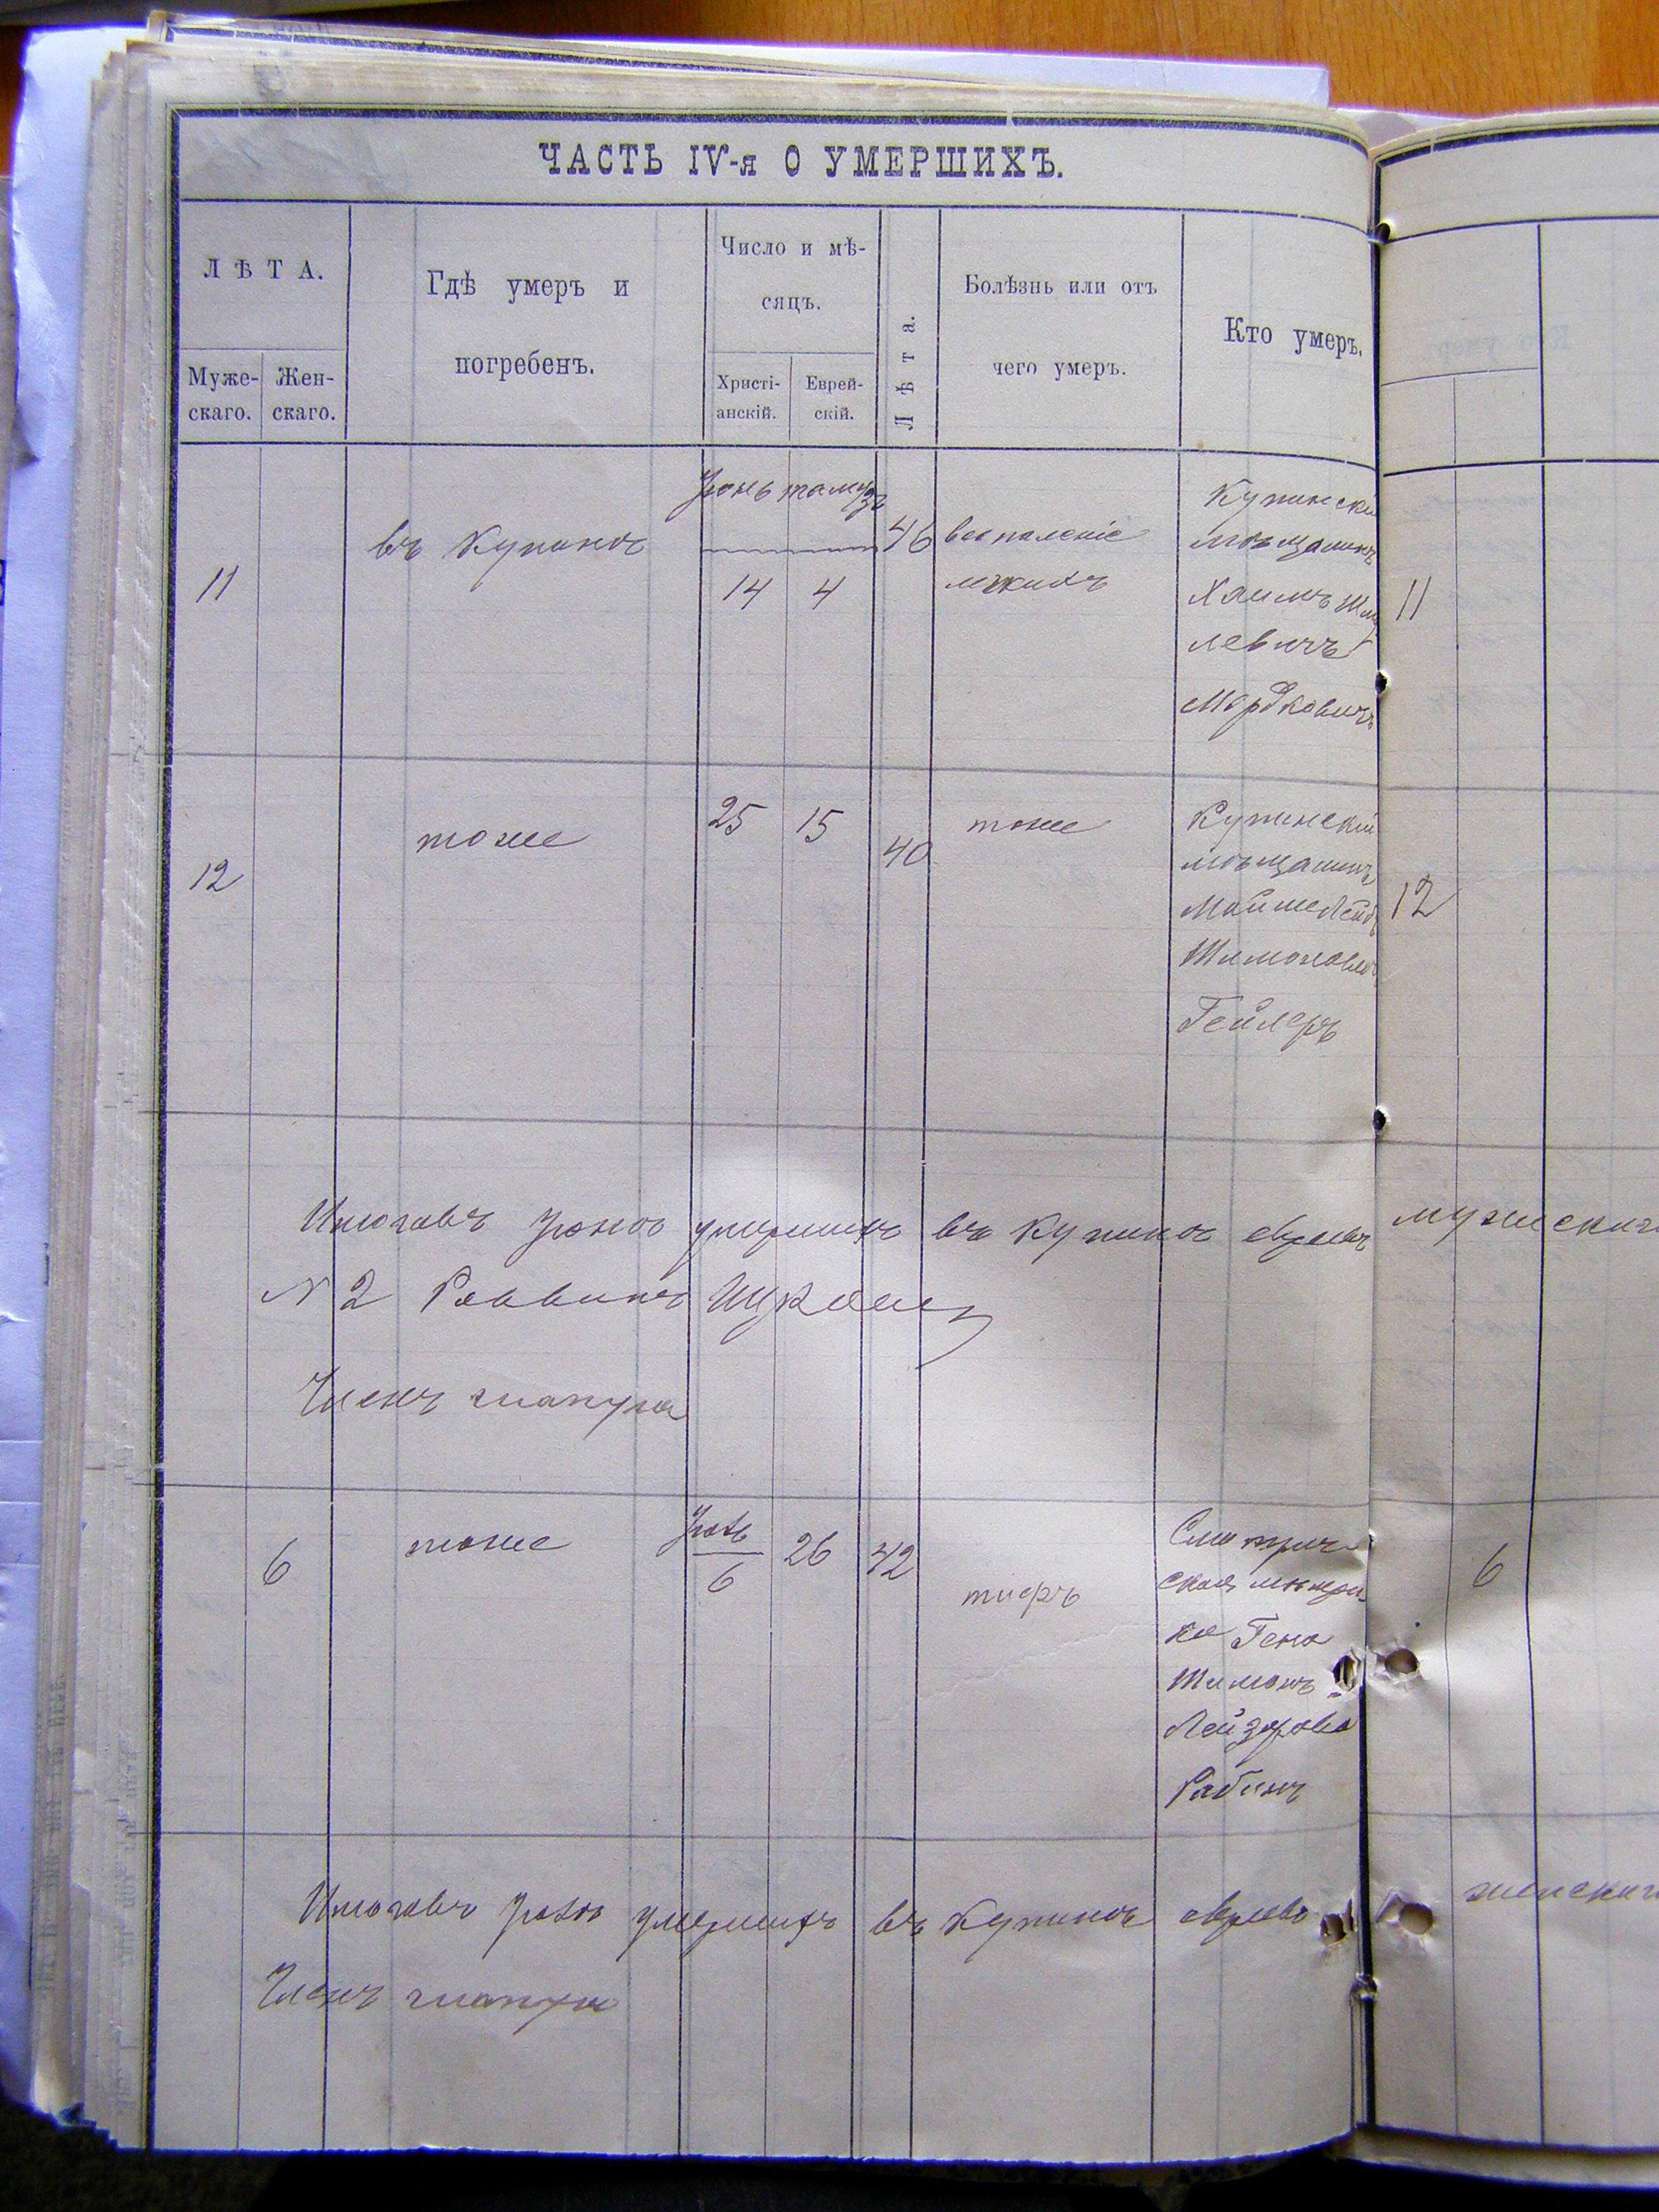 ЧАСТЬ IV-я О УМЕРШИХЪ.
ЛѢТА.
Муже-
скаго.
Жен-
скаго.
Гдѣ умеръ и
погребенъ.
Число и мѣ-
сяцъ.
Христі-
анскій.
Еврей-
скій.
Лѣта.
Болѣзнь или отъ
чего умеръ.
Кто умеръ.
11
въ Купинѣ
Іюнь тамузъ
14 4
46
воспаленіе
легкихъ
Купинскій
мѣщанинъ
Хаимъ Шму
левичъ
Мордковичъ
11
12
тоже
25 15
40
тоже
Купинскій
мѣщанинъ
Мойше Лейбъ
Шимоновичъ
Гейлеръ
12
Итогавъ Іюнѣ умершихъ въ Купинѣ евреевъ мужескаго
№ 2 Раввинъ
Членъ
6
тоже
Іюль
6
26
42
тифъ
Смотрич-
ская мѣщан-
ка Гена
Шимонъ
Лейзерова
Рабинъ
6
Итогавъ Іюлѣ умершихъ въ Купинѣ еврее женскаго
Членъ